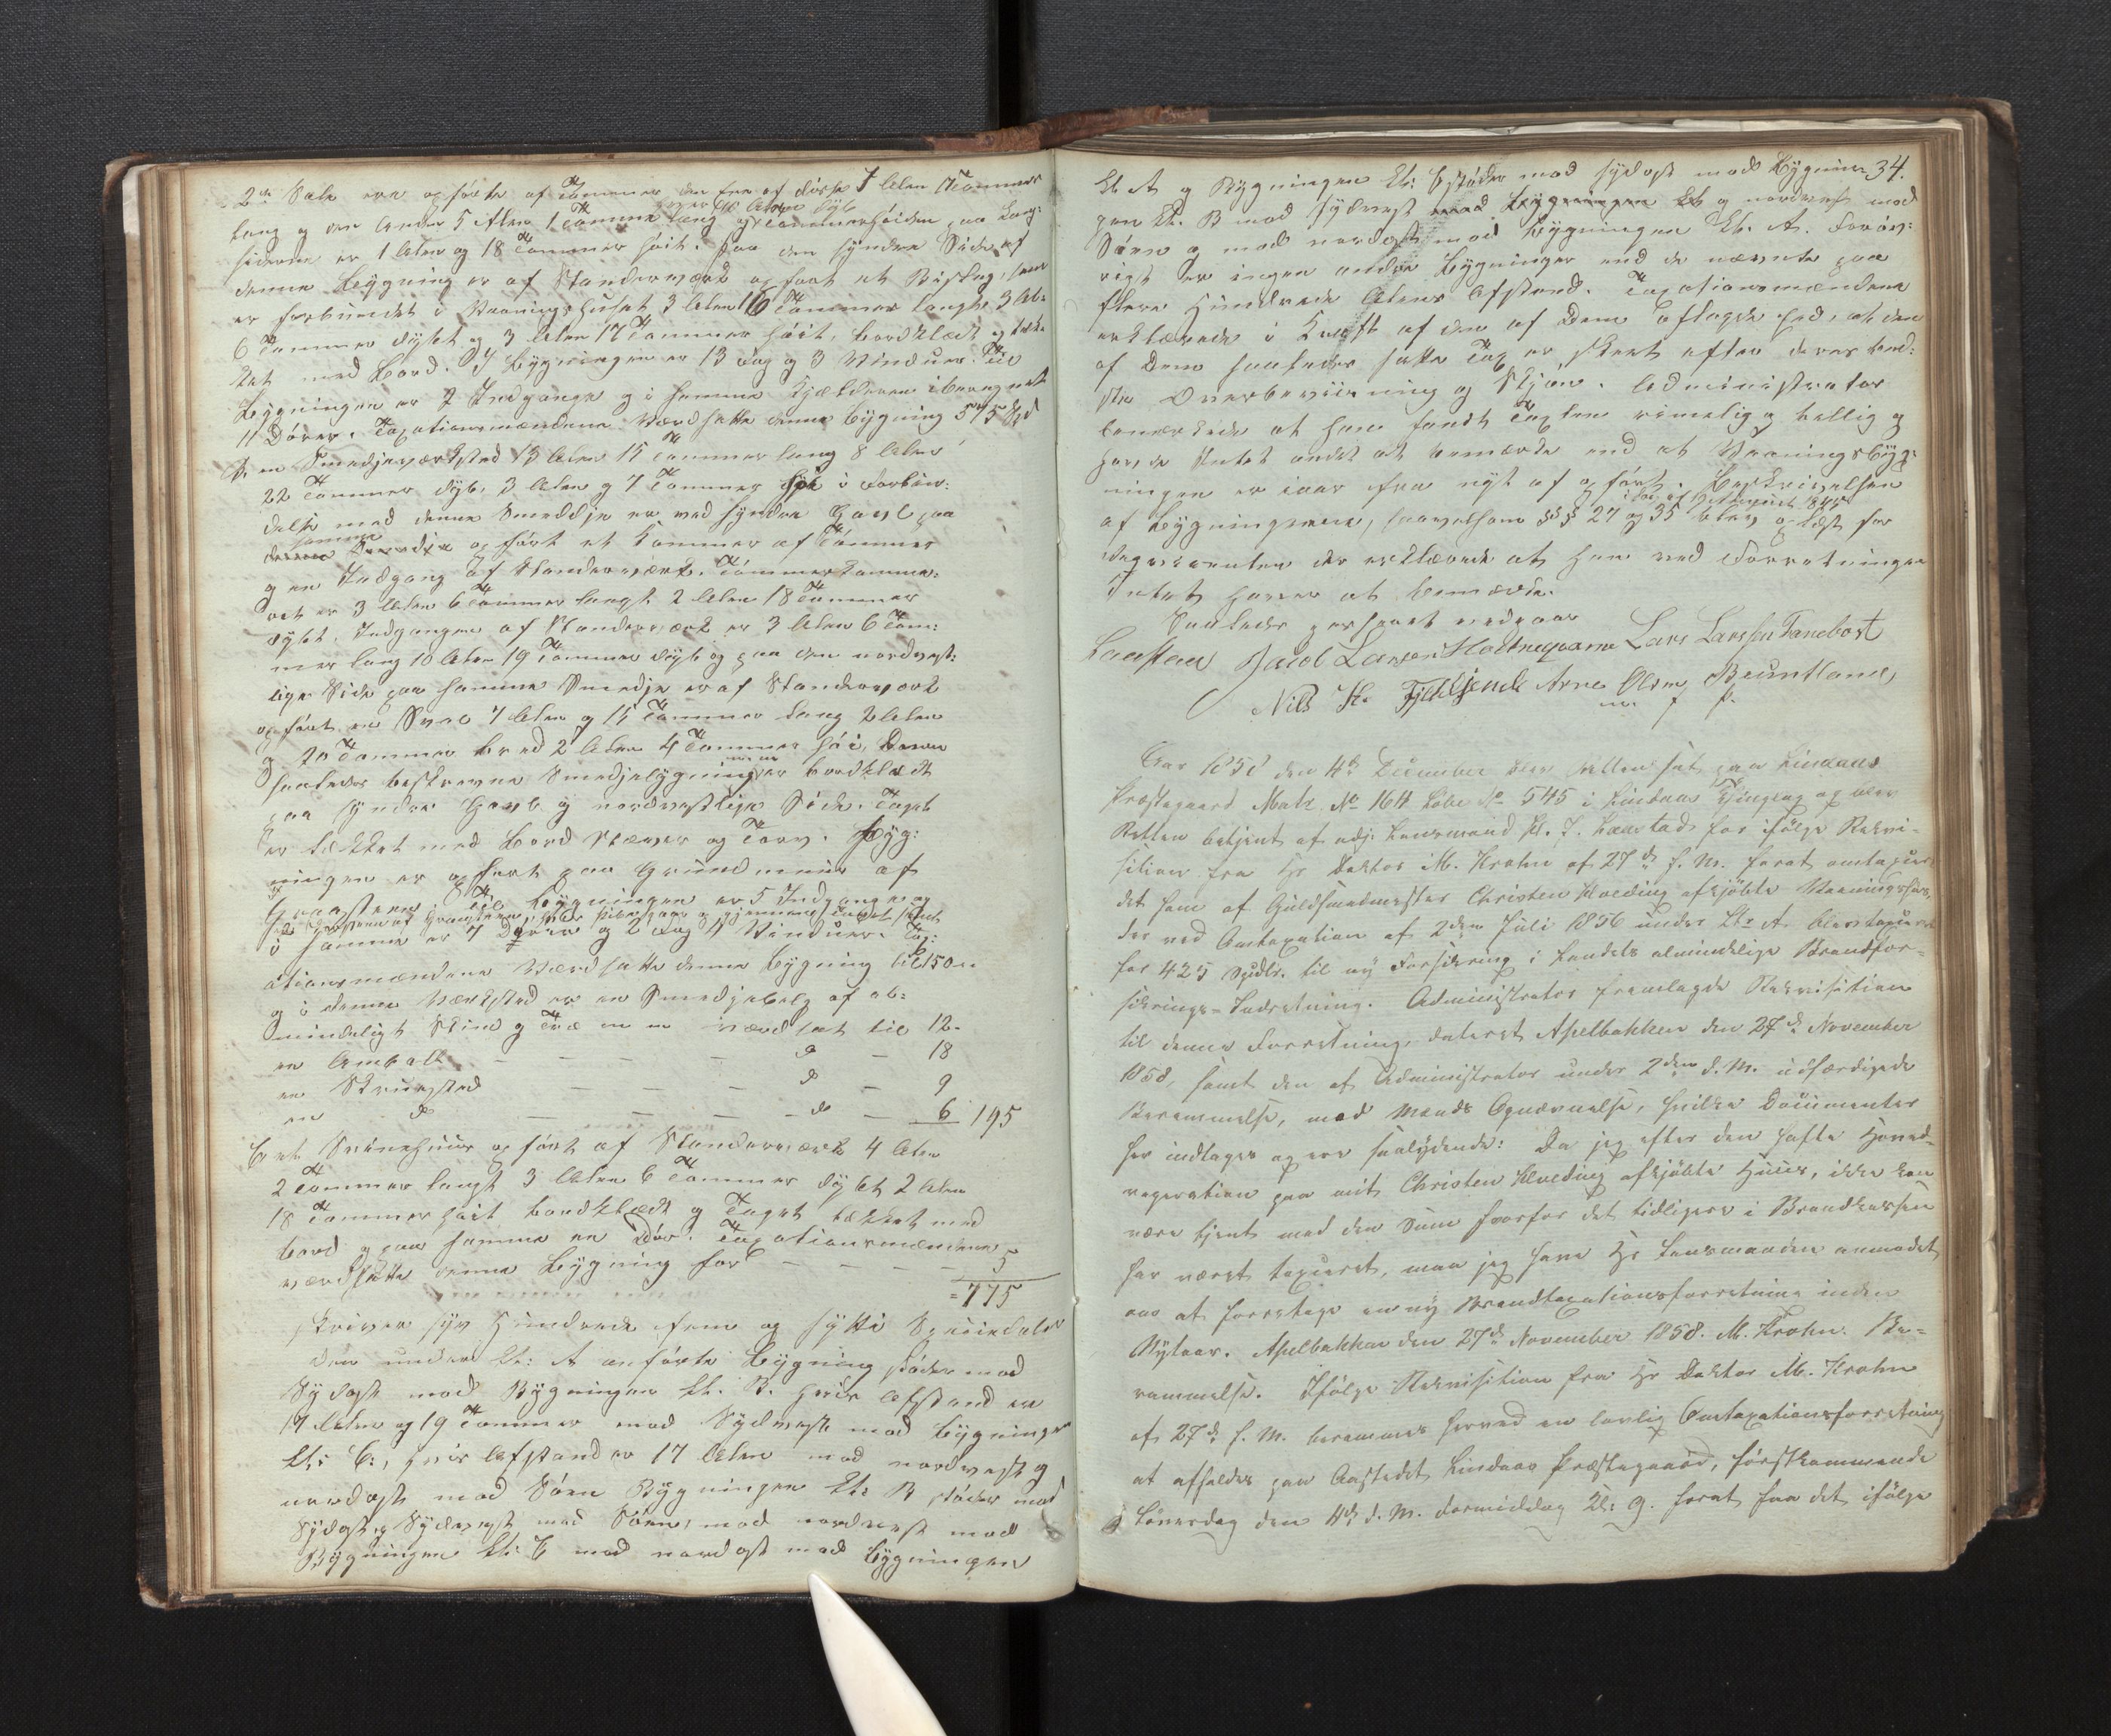 2de Sale ere opførte af Tømmer den ene af disse 7 Alen Tommer
lang og den anden 5 Alen 1 Tomme lang og Tømmerhøiden paa Lang-
siderne er 1 Alen og 18 Tommer høit. Paa den søndre Side af
denne Bygning er af Standerværk opført et Bislag, som
er forbundet i Vaaningshuset 3 Alen 16 Tommer langt 3 Al:
6 Tommer dybt og 3 Alen 17 Tommer høit, bordklædt og tæk-
ket med Bord. I Bygningen er 13 Fag og 3 Vinduer. Til
Bygningen er 2 Indgange og i samme Kjælderen iberegnet
11 Dører. Taxationsmændene værdsatte denne Bygning 575 Spd
B, en Smedjeværksted 13 Alen 15 Tommer lang 8 Alen
22 Tommer dyb, 3 Alen og 7 Tommer høi i Forbin-
delse med denne Smedje er ved søndre Gavl paa
samme
denne Smedje opført et Kammer af Tømmer
og en Indgang af Standerværk. Tømmerkamme-
ret er 3 Alen 6 Tommer langt 2 Alen 18 Tommer
dybt, Indgangen af Standerværk er 3 Alen 6 Tom-
mer lang 10 Alen 19 Tommer dyb og paa den nordvest-
lige Side paa samme Smedje er af Standerværk
opført en Sval 7 Alen og 15 Tommer lang 2 Alen
og 20 Tommer bred 2 Alen 4 Tommer høi, Denne
saaledes beskrevne Smedjebygning er bordklædt
paa søndre Gavl og nordvestlige Side. Taget
er tækket med Bord Næver og Torv. Byg-
ningen er opført paa Grundmuur af
Graasteen. Til Bygningen er 5 Indgange og
i samme er 7 Dører og 2 Fag 4 Vinduer. Tax-
ationsmændene værdsatte denne Bygning til 150 "
og i denne Værksted er en Smedjebelg af al-
mindeligt Skind og Træ værdsat til 12 -
en Ambolt - - - - do - 18
en Skruested - - - do - 9
en do - - - - do - 6 195
C, et Svinehuus opført af Standerværk 4 Alen
2 Tommer langt 3 Alen 6 Tommer dybt 2 Alen
18 Tommer høit bordklædt og Taget tækket med
Bord og paa samme en Dør. Taxationsmændene
værdsatte denne Bygning for - - - - 5
= 775
skriver syv Hundrede fem og sytti Speciedaler
Den under Lt: A anførte Bygning støder mod
Sydost mod Bygningen Lt: B. hvis Afstand er
17 Alen og 19 Tommer mod Sydvest mod Bygningen
Lt: C:, hvis Afstand er 17 Alen mod nordvest og
nordost mod Søen Bygningen Lt: B støder mod
Sydost og Sydvest mod Søen, mod nordvest mod
Bygningen Lt: C mod nordost mod Bygningen
34.
Lt. A og Bygningen Lt: C støder mod sydost mod Bygnin-
gen Lt. B mod sydvest mod Bygningen Lt og nordvest mod
Søen og mod nordost mod Bygningen Lt. A. Forøv-
rigt er ingen andre Bygninger end de nævnte paa
flere Hundrede Alens Afstand. Taxationsmændene
erklærede i Kraft af den af dem aflagde Eed, at den
af Dem saaledes satte Tax er skeet efter deres bed-
ste Overbeviisning og Skjøn. Administrator
bemærkede at han fandt Taxten rimelig og billig og
havde Intet andet at bemærke end at Vaaningsbyg-
ningen er iaar fra nyt af opført. Beskrivelsen
i Lov af 1845
af Bygningerne, saavelsom §§§ 27 og 35 blev oplæst for
Reqvirenten der erklærede at han ved Forretningen
Intet havde at bemærke.
Saaledes passeret vedgaaes
Laastad Jacob Larsen Lars Larssen Fanebost
Nils H. Fjeldsende Arne Olsen Bruntland,
m. f. P.
Aar 1858 den 4de December blev Retten sat paa Lindaas
Præstegaard Matr. No 164 Løbe No 545 i Lindaas Thinglag og blev
Retten betjent af adj. Lensmand H. J. Laastad for ifølge Rekvi-
sition fra Hr Doktor M. Krohn af 27de f. M. forat omtaxere
det ham af Guldsmedmester Christen Kolding afkjøbte Vaaningshus,
der ved Omtaxation af 2den Juli 1856 under Ltr A blev taxeret
for 425 Spdlr. til ny Forsikring i Landets almindelige Brandfor-
sikrings-Indretning. Administrator fremlagde Rekvisition
til denne Forretning, dateret Apelbakken den 27de November
1858, samt den af Administrator under 2den d. M. udfærdigede
Berammelse, med Mænds Opnævnelse, hvilke Documenter
her indtages og ere saalydende: Da jeg efter den hafte Hoved-
reperation paa mit Christen Kolding afkjøbte Huus, ikke kan
være tjent med den Sum hvorfor det tidligere i Brandkassen
har været taxeret, maa jeg have Hr Lensmanden anmodet
om at foretage en ny Brandtaxationsforretning inden
Nytaar. Apelbakken den 27de November 1858. M. Krohn. Be-
rammelse. Ifølge Rekvisition fra Hr Doktor M. Krohn
af 27de f. M. berammes herved en lovlig Omtaxationsforretning
at afholdes paa Aastedet Lindaas Præstegaard, førstkommende
Løverdag den 4de d. M. Formiddag Kl: 9. forat faa det ifølge